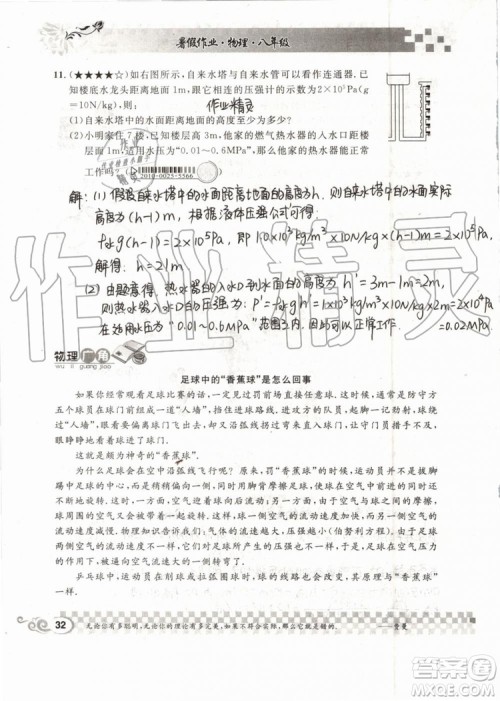 暑假作业·物理·八年级
11.(★★★★☆)如右图所示,自来水塔与自来水管可以看作连通器.已
知楼底水龙头距离地面1m,跟它相连的压强计的示数为2×10⁵Pa
(g=10N/kg),则:
作业精灵
(1)自来水塔中的水面距离地面的高度至少为多少?
(2)小明家住7楼,已知楼层高3m,他家的燃气热水器的入水口距楼
面1m,适用水压为“0.01~0.6MPa”,那么他家的热水器能正常
工作吗?
2010-0025-5566
解:(1)假设自来水塔中的水面距离地面的高度为h,则自来水塔的水面实际
高度为(h-1)m,根据液体压强公式可得:
ρ水g(h-1)m=2×10⁵Pa,即1.0×10³kg/m³×10N/kg×(h-1)m=2×10⁵Pa,
解得:h=21m.
(2)由题意得,热水器的入水口到水面的高度为h'=3m-1m=2m,
则热水器的入水口的水压为:p'=1.0×10³kg/m³×10N/kg×2m=2×10⁴Pa
=0.02MPa
适用水压为“0.01~0.6MPa”范围之内,所以可以正常工作.
作业精灵
物理广角
wu li guang jiao
足球中的“香蕉球”是怎么回事
如果你经常观看足球比赛的话,一定见过罚前场直接任意球.这时候,通常是防守方
五六个球员在球门前组成一道“人墙”,挡住进球路线.进攻方的主罚队员,起脚一记劲
射,球绕过了“人墙”,眼看要偏离球门飞出,却又沿弧线拐过弯来直入球门,让守门员
眼睁睁地看着球进了球门.
这就是颇为神奇的“香蕉球”.
为什么足球会在空中沿弧线飞行呢?原来,罚“香蕉球”的时候,运动员并不是拔脚
踢中足球的中心,而是稍稍偏向一侧,同时用脚背摩擦足球,使球在空气中前进的同时
不断地旋转.这时,一方面空气迎着球向后流动,另一方面,由于空气与球之间的摩擦,
球周围的空气又会被带着一起旋转.这样,球一侧空气的流动速度加快,而另一侧空气
的流动速度减慢.物理知识告诉我们:气体的流速越大,压强越小(伯努利方程).由于足
球两侧空气的流动速度不一样,它们对足球所产生的压强也不一样,于是,足球在空气
压力的作用下,被迫向空气流速大的一侧转弯了.
乒乓球中,运动员在削球或拉弧圈球时,球的线路会改变,道理与“香蕉球”
一样.
32
无论你有多聪明,无论你的理论有多完美,如果不符合实际,那么它就是错的. ——费曼
答案圈
MXQE.COM